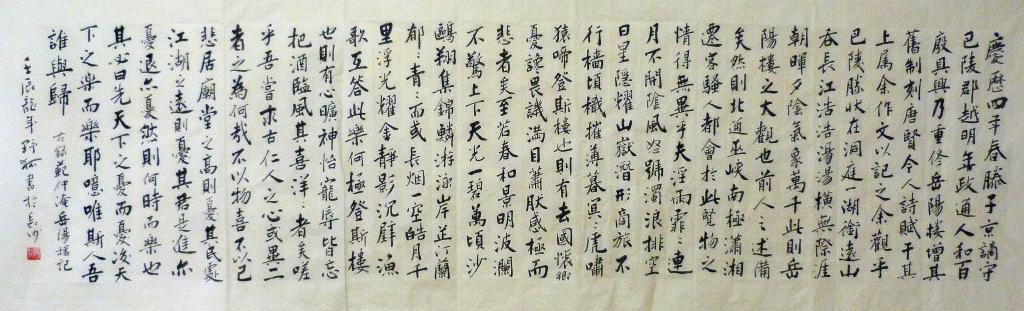 慶曆四年春滕子京謫守
巴陵郡越明年政通人和百
廢具興乃重修岳陽樓增其
舊制刻唐賢今人詩賦于其
上屬余作文以記之余觀乎
巴陵勝狀在洞庭一湖銜遠山
吞長江浩浩湯湯橫無際涯
朝暉夕陰氣象萬千此則岳
陽樓之大觀也前人之述備
矣然則北通巫峽南極瀟湘
遷客騷人都會於此覽物之
情得無異乎夫淫雨霏〻連
月不開陰風怒號濁浪排空
日星隱耀山嶽潛形商旅不
行檣頃檝摧薄暮冥〻虎嘯
猿啼登斯樓也則有去國懷鄉
憂讒畏譏滿目蕭然感極而
悲者矣至若春和景明波瀾
不驚上下天光一碧萬頃沙
鷗翔集錦鱗游泳岸芷汀蘭
郁〻青〻而或長烟一空皓月千
里浮光耀金靜影沉壁漁
歌互答此樂何極登斯樓
也則有心曠神怡寵辱皆忘
把酒臨風其喜洋〻者矣嗟
乎吾嘗求古仁人之心或異二
者之為何哉不以物喜不以己
悲居廟堂之高則憂其民處
江湖之遠則憂其君是進亦
憂退亦憂然則何時而樂也
其必曰先天下之憂而憂後天
下之樂而樂耶噫唯斯人吾
誰與歸 右錄範仲淹岳陽樓記
壬辰龍年 書於長沙